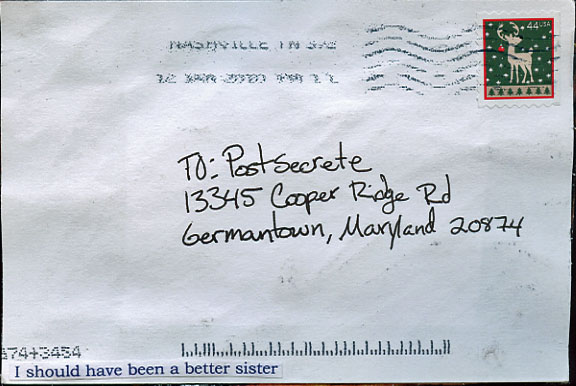 NASHVILLE TN 372
12 JAN 2010 PM 1 L
44USA
TO: PostSecrete
13345 Cooper Ridge Rd
Germantown, Maryland 20874
A74+3454
I should have been a better sister